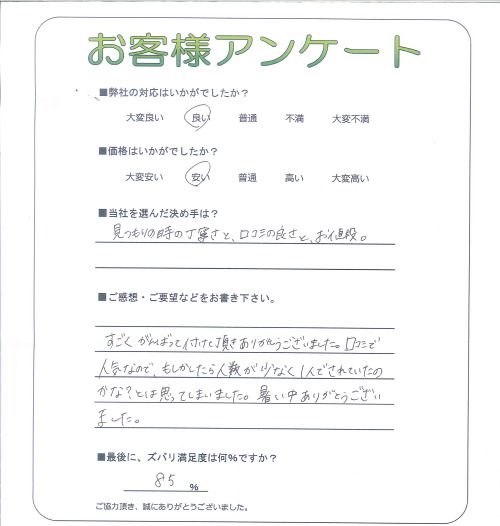 お客様アンケート
■弊社の対応はいかがでしたか？
大変良い 良い 普通 不満 大変不満
■価格はいかがでしたか？
大変安い 安い 普通 高い 大変高い
■当社を選んだ決め手は？
見つもりの時の丁寧さと、口コミの良さと、お値段。
■ご感想・ご要望などをお書き下さい。
すごくがんばって付けて頂きありがとうございました。口コミで
人気なので、もしかしたら人数が少なく1人でされていたの
かな?とは思ってしまいました。暑い中ありがとうござい
ました。
■最後に、ズバリ満足度は何%ですか？
85 %
ご協力頂き、誠にありがとうございました。